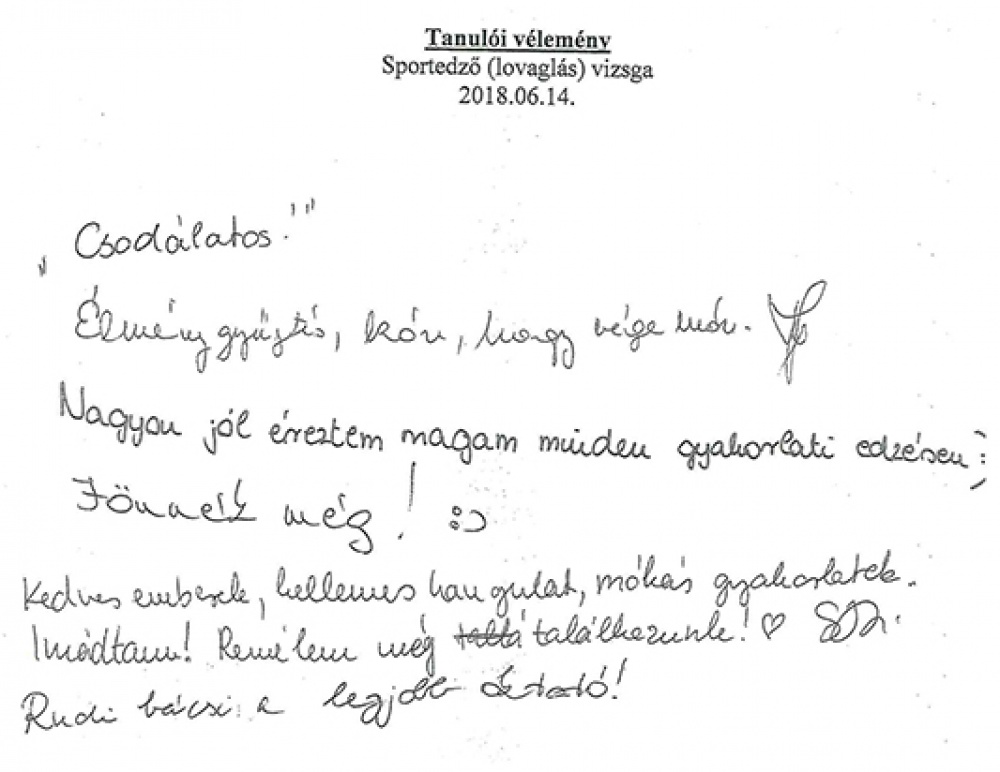 Tanulói vélemény
Sportedző (lovaglás) vizsga
2018.06.14.
„Csodálatos!"
Élménygyűjtés, kár, hogy vége már.
Nagyon jól éreztem magam minden gyakorlati edzésen :)
Jönnék még! :)
Kedves emberek, kellemes hangulat, mókás gyakorlatok.
Imádtam! Remélem még találkozunk! ♡
Rudi bácsi a legjobb oktató!